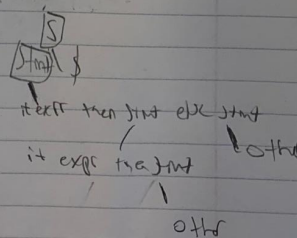 S
stmt $
if expr then stmt else stmt
if expr then stmt othr
othr